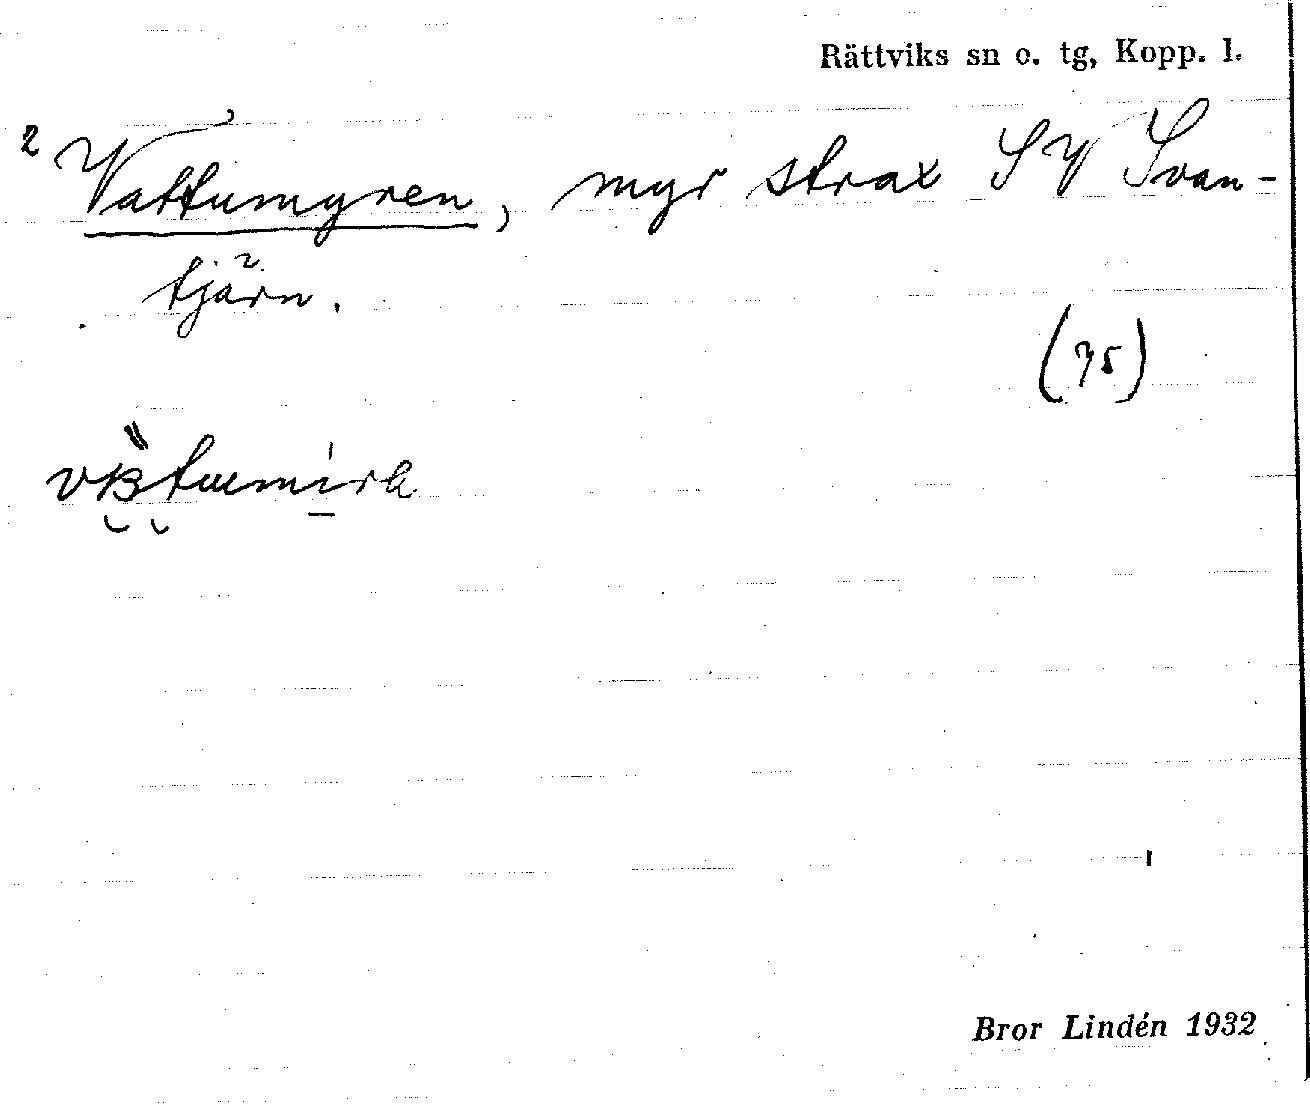 Rättviks sn o. tg, Kopp. l.
2 Vattumyren, myr strax SV Svan-
tjärn.
(75)
Bror Lindén 1932